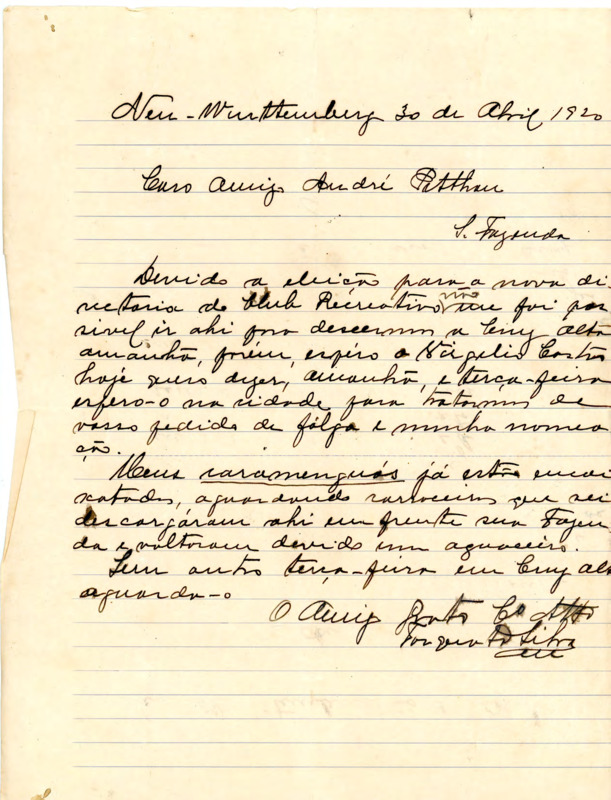 Neu-Wurttemberg 30 de Abril 1920
Caro Amigo André
S. Fazenda
Devido a eleição para a nova di-
rectoria do Club Récreativo não me foi pos
sivel ir ahi para descermos a Cruz Alta
amanhã, porém, espéro o Virgilio Castro
hoje quero dizer, amanhã, e terça-feira
espero-o na cidade para tratarmos de
vosso pedido de fólga e minha nomea
ção.
Meus caramenguás já estão encai
xotados, aguardando carroceiros que sei
descargáram ahi em frente sua Fazen
da e voltaram devido um aguaceiro.
Sem outro terça-feira em Cruz Alta
aguarda-o
O Amigo Grato Cº Atto
Silva